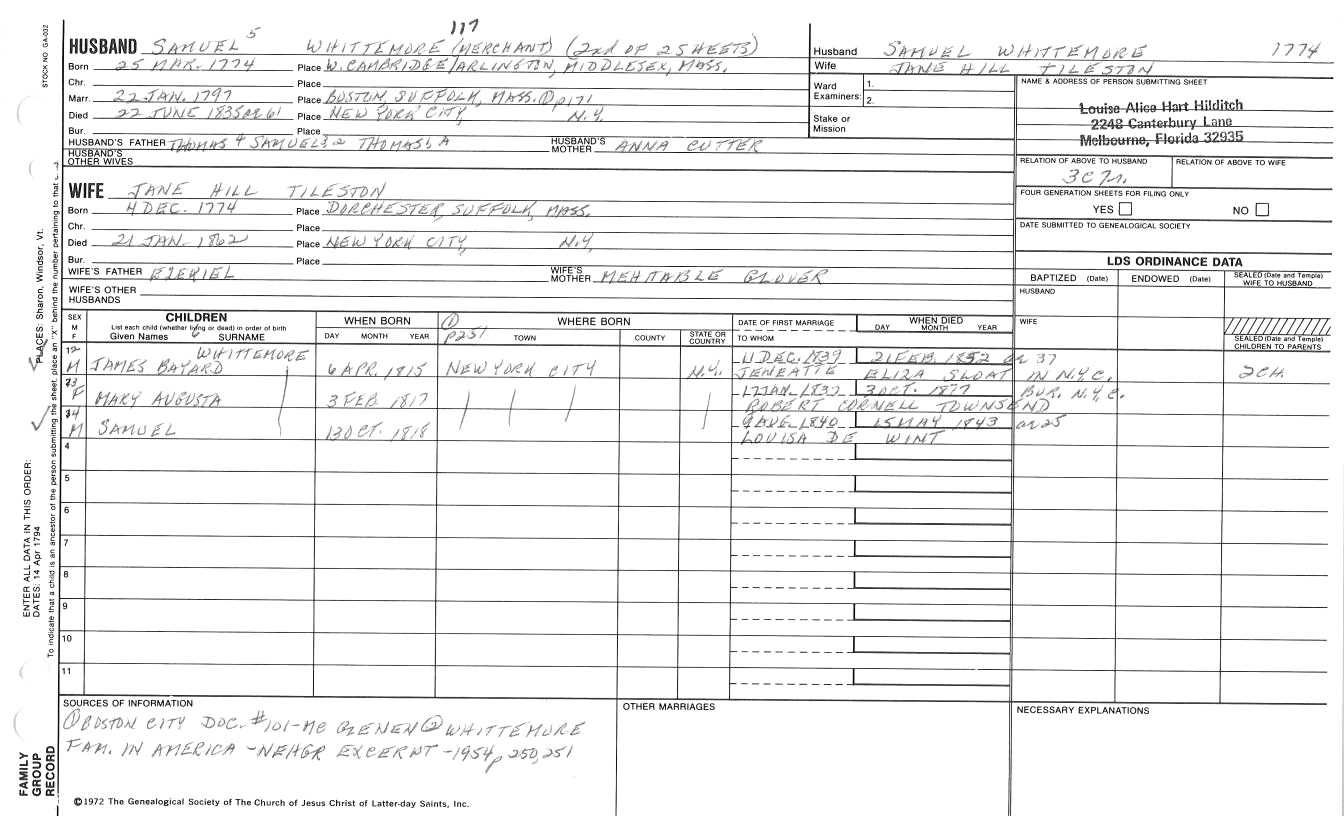 117
HUSBAND SAMUEL 5 WHITTEMORE (MERCHANT) (2nd OF 2 SHEETS)
Born 25 MAR. 1774 Place W. CAMBRIDGE/ARLINGTON, MIDDLESEX, MASS.
Chr. Place
Marr. 22 JAN. 1797 Place BOSTON, SUFFOLK, MASS. ① p171
Died 22 JUNE 1835 Æ 61 Place NEW YORK CITY, N.Y.
Bur. Place
HUSBAND'S FATHER THOMAS 4 SAMUEL 3 2 THOMAS 1 A HUSBAND'S MOTHER ANNA CUTTER
HUSBAND'S OTHER WIVES
WIFE JANE HILL TILESTON
Born 4 DEC. 1774 Place DORCHESTER, SUFFOLK, MASS.
Chr. Place
Died 21 JAN. 1862 Place NEW YORK CITY, N.Y.
Bur. Place
WIFE'S FATHER EZEKIEL WIFE'S MOTHER MEHITABLE GLOVER
WIFE'S OTHER HUSBANDS
Husband SAMUEL WHITTEMORE 1774
Wife JANE HILL TILESTON
Ward Examiners: 1.
2.
Stake or Mission
NAME & ADDRESS OF PERSON SUBMITTING SHEET
Louise Alice Hart Hilditch
2248 Canterbury Lane
Melbourne, Florida 32935
RELATION OF ABOVE TO HUSBAND RELATION OF ABOVE TO WIFE
3C7r.
FOUR GENERATION SHEETS FOR FILING ONLY
YES NO
DATE SUBMITTED TO GENEALOGICAL SOCIETY
LDS ORDINANCE DATA
BAPTIZED (Date) ENDOWED (Date) SEALED (Date and Temple) WIFE TO HUSBAND
HUSBAND
WIFE
SEALED (Date and Temple) CHILDREN TO PARENTS
SEX M F CHILDREN WHEN BORN WHERE BORN DATE OF FIRST MARRIAGE WHEN DIED
List each child (whether living or dead) in order of birth
Given Names 6 SURNAME DAY MONTH YEAR ① p251 TOWN COUNTY STATE OR COUNTRY TO WHOM DAY MONTH YEAR
12 WHITTEMORE 11 DEC. 1839 21 FEB. 1852 Æ 37
M JAMES BAYARD 6 APR. 1815 NEW YORK CITY N.Y. JENEATTE ELIZA SLOAT IN N.Y.C. 2CH.
13 17 JAN. 1837 3 OCT. 1877 BUR. N.Y.C.
F MARY AUGUSTA 3 FEB 1817 ROBERT CORNELL TOWNSEND
14 9 AUG. 1840 15 MAY 1843 Æ 25
M SAMUEL 13 OCT. 1818 LOUISA DE WINT
4
5
6
7
8
9
10
11
SOURCES OF INFORMATION
① BOSTON CITY DOC. #101 ② WHITTEMORE
FAM. IN AMERICA - NEHGR EXCERPT - 1954, p 250, 251
OTHER MARRIAGES
NECESSARY EXPLANATIONS
©1972 The Genealogical Society of The Church of Jesus Christ of Latter-day Saints, Inc.
STOCK NO. GA-032
PLACES: Sharon, Windsor, Vt.
ENTER ALL DATA IN THIS ORDER:
DATES: 14 Apr 1794
To indicate that a child is an ancestor of the person submitting the sheet, place an "X" behind the number pertaining to that
FAMILY GROUP RECORD